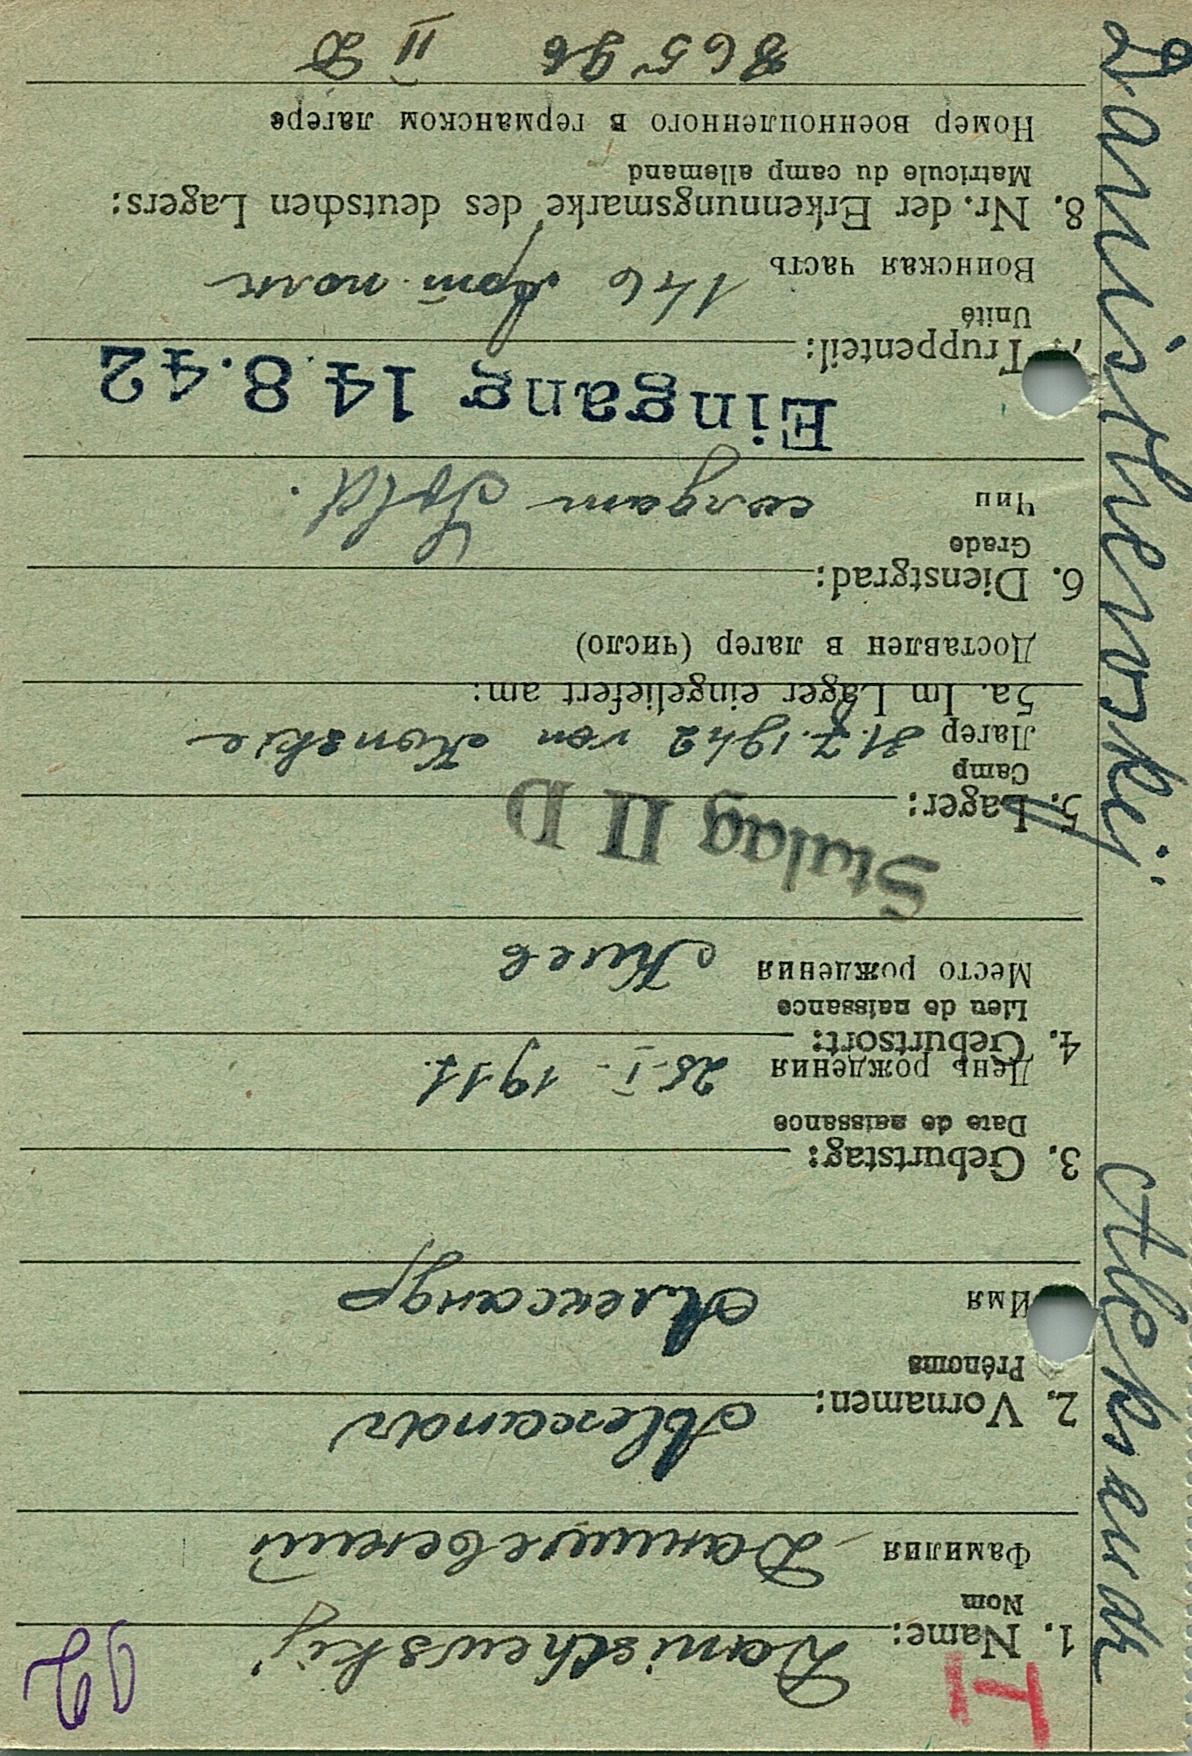 T
92
1. Name: Danisthewskij
Nom
Фамилия Данишевский
2. Vornamen: Alexandr
Prénoms
Имя Александр
3. Geburtstag:
Date de naissance
День рождения 25. I. 1911.
4. Geburtsort:
Lieu de naissance
Место рождения Киев
Stalag II D
5. Lager:
Camp
Лагер 31.7.1942 von Konskie
5a. Im Lager eingeliefert am:
Доставлен в лагер (число)
6. Dienstgrad:
Grade
Чин солдат Sold.
Eingang 14.8.42
7. Truppenteil:
Unité
Воинская часть 146 Арт полк
8. Nr. der Erkennungsmarke des deutschen Lagers:
Matricule du camp allemand
Номер военнопленного в германском лагере
86596 II D
Danisthewskij Aleksandr